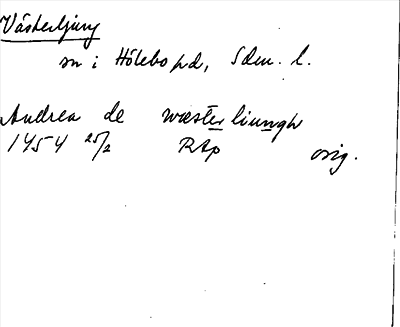 Västerljung
sn i Hölebo hd, Sdm. l.
Andrea de wæsterliungh
1454 25/2 RAp orig.